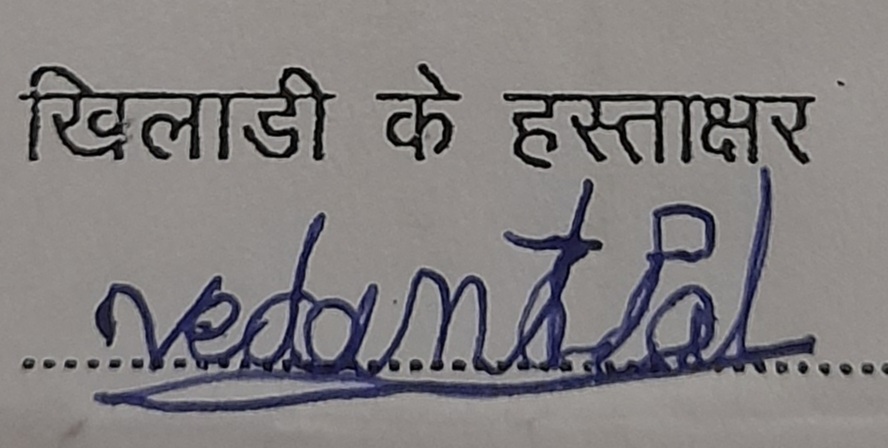 खिलाडी के हस्ताक्षर
vedant Pal